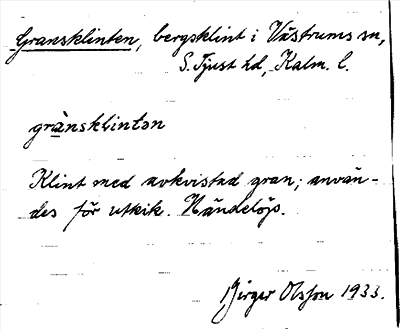 Gransklinten, bergsklint i Västrums sn,
S. Tjust hd, Kalm. l.
gränsklintən
Klint med avkvistad gran; använ-
des för utkik. Händelöps.
Birger Olsson 1933.